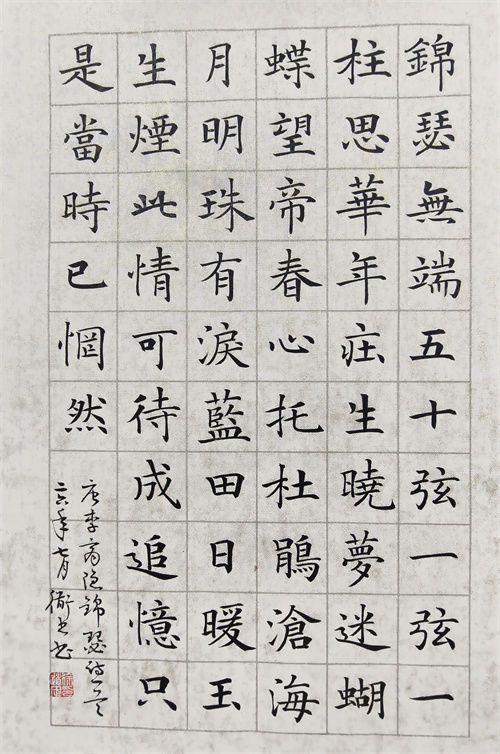 錦瑟無端五十弦一弦一
柱思華年庄生曉夢迷蝴
蝶望帝春心托杜鵑滄海
月明珠有淚藍田日暖玉
生煙此情可待成追憶只
是當時已惘然
唐李商隐錦瑟诗一首
二六年七月